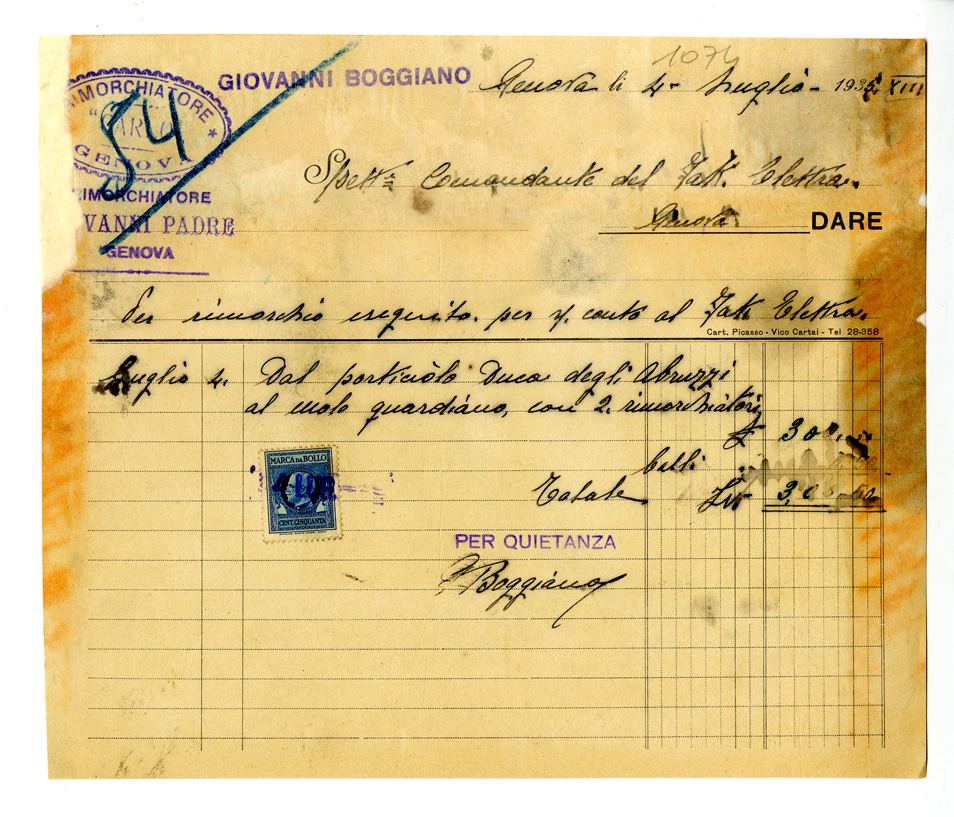 1074
GIOVANNI BOGGIANO
Genova li 4 - Luglio - 1935 XIII
RIMORCHIATORE
"CARLO
GENOVA
54
Spett. Comandante del Yak. Elettra.
RIMORCHIATORE
VANNI PADRE
GENOVA
Genova. DARE
Per rimorchio eseguito. per v/. conto al Yak. Elettra.
Cart. Picasso - Vico Cartai - Tel 28-358
Luglio 4. Dal porticiòlo Duca degli Abruzzi
al molo guardiano, con 2. rimorchiatori
£ 300,
bolli
Totale Lit 30 . 50
MARCA DA BOLLO
CENT. CINQUANTA
PER QUIETANZA
Boggiano